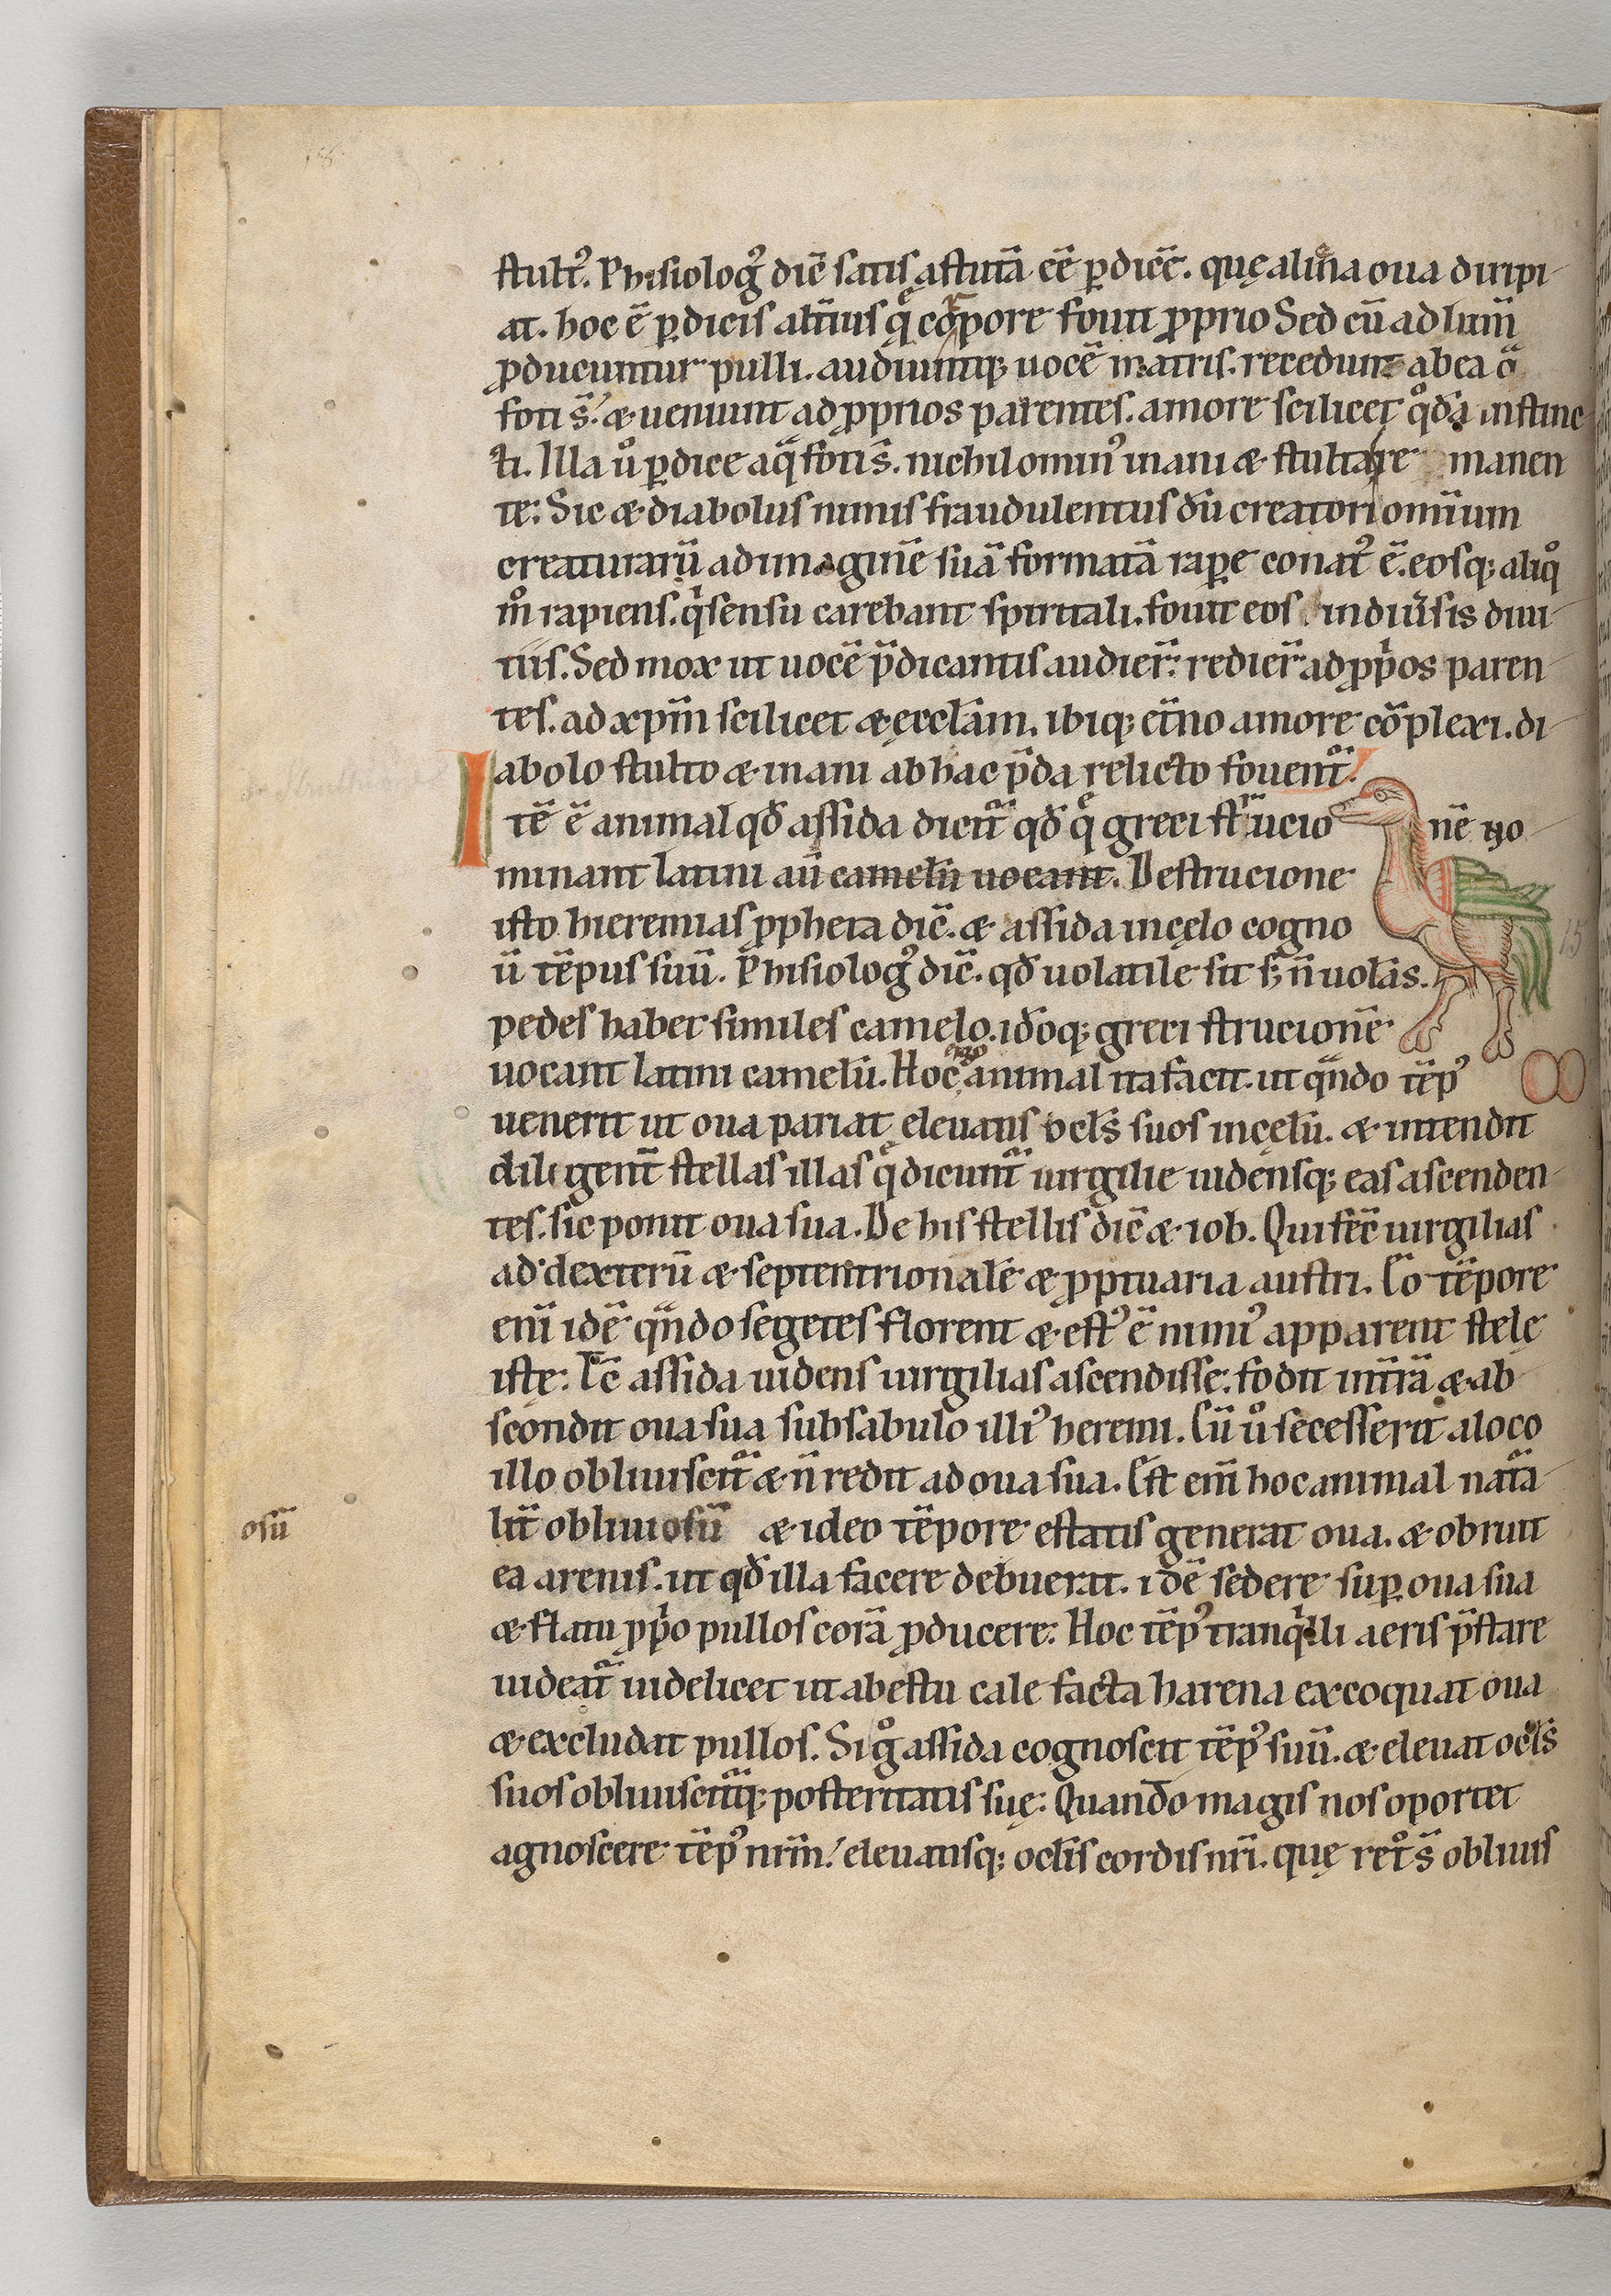 stult᷒. Phisiolog᷒ dic̄ satis astutā eē ꝑdicē. quę aliena oua diripi
at. hoc ē ꝑdicis alt̄ius q̄ corpore fouit ꝓprio Sed cū ad lum̄
ꝓducuntur pulli. audiuntq; uocē matris. recedunt ab ea q̄
foti s̄. & ueniunt ad ꝓprios parentes. amore scilicet q̊dā instinc
ti. Illa ů ꝑdice a q̄ foti s̄. nichilomin᷒ inani & stulta re manen
te. Sic & diabolus nimis fraudulentus dū creatori omīum
creaturarū ad imaginē suā formatā raꝑe conat᷒ ē. eosq; aliq̊
m̊ rapiens. qͥ sensu carebant spiritali. fouit eos in diūsis diui
tiis. Sed mox ut uocē p̄dicantis audier̄. redier̄ ad ꝓpͥos paren
tes. ad xp̄m scilicet & ęccl̄am. ibiq; et̄no amore cōplexi. di
abolo stulto & inani ab hac p̄da relicto fouent᷑.
Itē ē animal qd̄ assida dicit᷑ qd̄ q̄ greci strucio nē no
minant latini aū camelū uocant. De strucione
isto hieremias ꝓpheta dic̄. & assida in cęlo cogno
ū tēpus suū. Phisiolog᷒ dic̄. qd̄ uolatile sit s; n̄ uolās.
pedes habet similes camelo. id̊oq; greci strucionē
uocant latini camelū. Hoc ergo animal ita facit. ut qn̄do tēp᷒
uenerit ut oua pariat eleuans ocl̄s suos in cęlū. & intendit
diligent̄ stellas illas q̄ dicunt᷑ uirgilie uidensq; eas ascenden
tes. sic ponit oua sua. De his stellis dic̄ & iob. Qui fec̄ uirgilias
ad dexterū & septentrionalē & ꝓptuaria austri. Eo tēpore
enī idē qn̄do segetes florent & est᷒ ē nimi᷒ apparent stelę
istę. Tc̄ assida uidens uirgilias ascendisse. fodit in t̄rā & ab
scondit oua sua sub sabulo illi᷒ heremi. Cū ů secesserit a loco
illo obliuiscit᷑ & n̄ redit ad oua sua. Est enī hoc animal nat᷑a
lit̄ obliuiosū & ideo tēpore estatis generat oua. & obruit
osū
ea arenis. ut qd̄ illa facere debuerat. idē sedere suꝑ oua sua
& flatu ꝓpͥo pullos corā ꝓducere. Hoc tēp᷒ tranqͥlli aeris p̄stare
uideat᷑ uidelicet ut ab estu cale facta harena excoquat oua
& excludat pullos. Si g̊ assida cognoscit tēp᷒ suū. & eleuat ocl̄s
suos obliuiscit᷑q; posteritatis suę. Quando magis nos oportet
agnoscere tēp᷒ nr̄m. eleuansq; ocl̄is cordis nr̄i. quę ret̊ s̄ obliuis